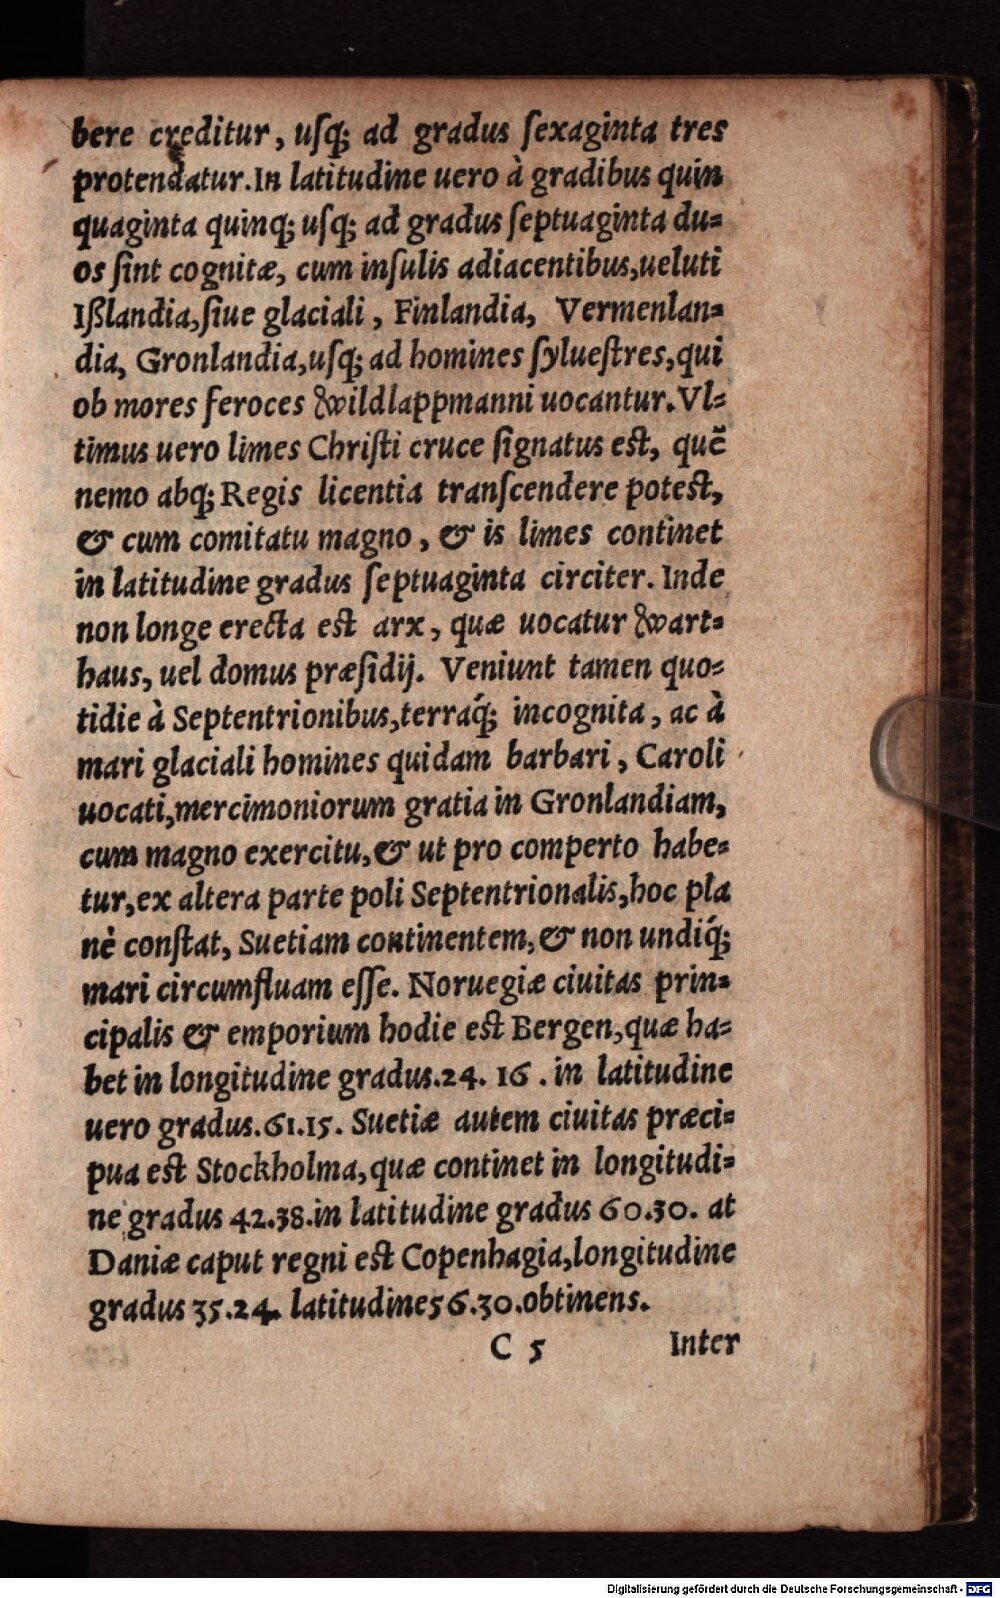 bere creditur, uſq; ad gradus ſexaginta tres
protendatur. In latitudine uero à gradibus quin
quaginta quinq; uſq; ad gradus ſeptuaginta du⸗
os ſint cognitæ, cum inſulis adiacentibus, ueluti
Ißlandia, ſiue glaciali, Finlandia, Vermenlan⸗
dia, Gronlandia, uſq; ad homines ſylueſtres, qui
ob mores feroces wildlappmanni uocantur. Vl⸗
timus uero limes Chriſti cruce ſignatus eſt, quē
nemo abſq; Regis licentia tranſcendere poteſt,
& cum comitatu magno, & is limes continet
in latitudine gradus ſeptuaginta circiter. Inde
non longe erecta eſt arx, quæ uocatur wart⸗
haus, uel domus præſidij. Veniunt tamen quo⸗
tidie à Septentrionibus, terraq́; incognita, ac à
mari glaciali homines quidam barbari, Caroli
uocati, mercimoniorum gratia in Gronlandiam,
cum magno exercitu, & ut pro comperto habe⸗
tur, ex altera parte poli Septentrionalis, hoc pla
nè conſtat, Suetiam continentem, & non undiq́;
mari circumfluam eſſe. Noruegiæ ciuitas prin⸗
cipalis & emporium hodie eſt Bergen, quæ ha⸗
bet in longitudine gradus. 24. 16. in latitudine
uero gradus. 61.15. Suetiæ autem ciuitas præci⸗
pua eſt Stockholma, quæ continet in longitudi⸗
ne gradus 42.38. in latitudine gradus 60.30. at
Daniæ caput regni eſt Copenhagia, longitudine
gradus 35.24. latitudine 56.30. obtinens.
C 5 Inter
Digitalisierung gefördert durch die Deutsche Forschungsgemeinschaft - DFG